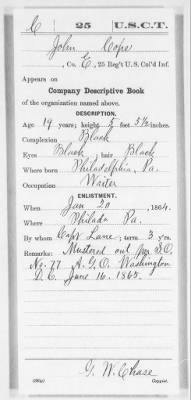 C 25 U.S.C.T.
John Cope
, Co. E, 25 Reg't U.S. Col'd Inf.
Appears on
Company Descriptive Book
of the organization named above.
DESCRIPTION.
Age 19 years; height 5 feet 5½ inches.
Complexion Black
Eyes Black, hair Black
Where born Philadelphia, Pa.
Occupation Waiter
ENLISTMENT.
When Jan 20, 1864.
Where Philada Pa.
By whom Capt Lane; term 3 y'rs.
Remarks: Mustered out per S.O.
No. 77 A.G.O. Washington
D.C. June 16. 1865.
G. W. Chase
Copyist.